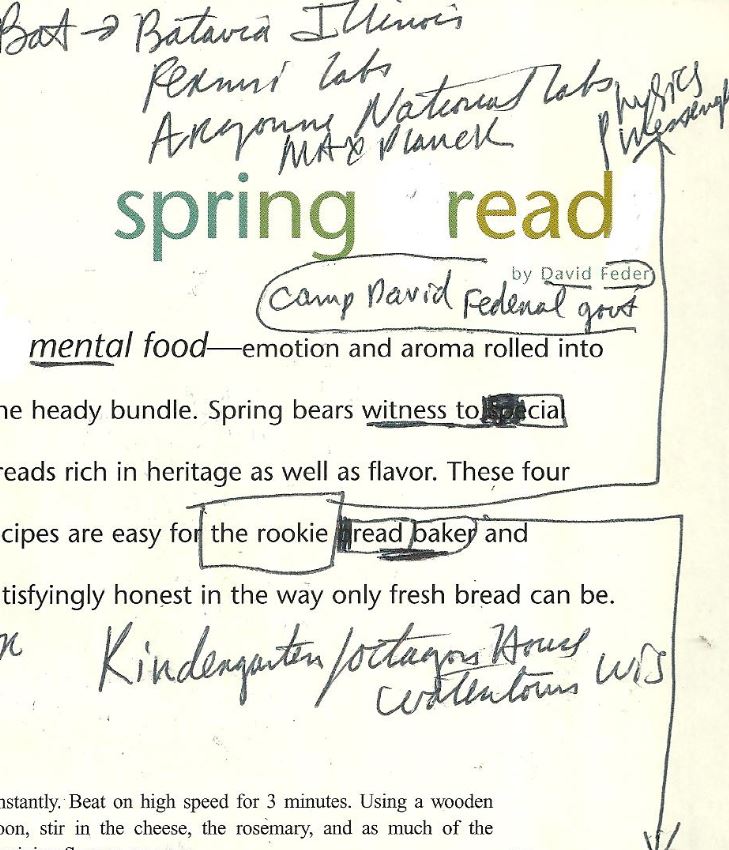 Bat → Batavia Illinois
Fermi labs
Argonne National labs
MAX Planck
Physics
Messenger
spring read
by David Feder
Camp David Federal govt
mental food—emotion and aroma rolled into
ne heady bundle. Spring bears witness to special
reads rich in heritage as well as flavor. These four
cipes are easy for the rookie bread baker and
tisfyingly honest in the way only fresh bread can be.
Kindergarten/octagon House
Watertown Wis
nstantly. Beat on high speed for 3 minutes. Using a wooden
oon, stir in the cheese, the rosemary, and as much of the